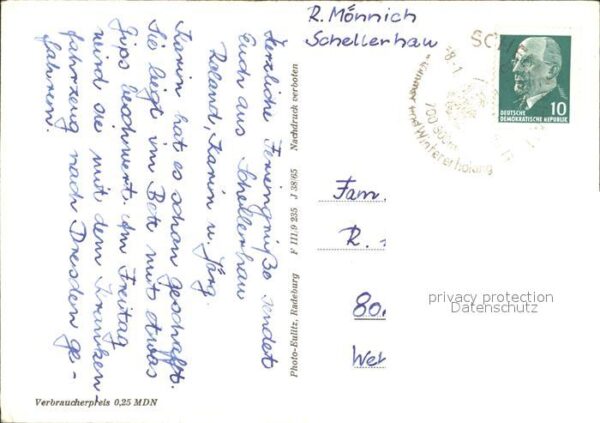 R. Mönnich
Schellerhaw
Herzliche Feriengrüße sendet
Euch aus Schellerhau
Roland, Karin u. Jörg.
Karin hat es schon geschafft.
Sie liegt im Bett mit etwas
Gips beschwert. Am Freitag
wird sie mit dem Kranken-
fahrzeug nach Dresden ge-
fahren.
Verbraucherpreis 0,25 MDN
Photo-Eulitz, Radeburg F III.9 235 J 38/65 Nachdruck verboten
SCH
700
Sommer und Wintererholung
10
DEUTSCHE
DEMOKRATISCHE REPUBLIK
Fam.
R.
80
Wer
privacy protection
Datenschutz